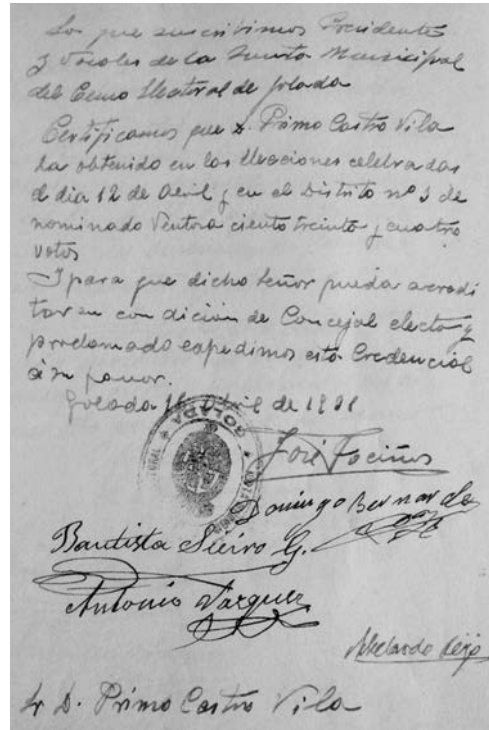 Los que suscribimos Presidente
y Vocales de la Junta Municipal
del Censo Electoral de Golada
Certificamos que D. Primo Castro Vila
ha obtenido en las elecciones celebradas
el dia 12 de Abril y en el Distrito nº 3 de
nominado Ventosa ciento treinta y cuatro
votos
I para que dicho señor pueda acredi
tar su condición de Concejal electo y
proclamado expedimos esta Credencial
á su favor.
Golada 16 Abril de 1931
GOLADA
José Fociños
Domingo Bernardez
Bautista Sieiro G.
Antonio Vazquez
Abelardo Seijo
Sr D. Primo Castro Vila